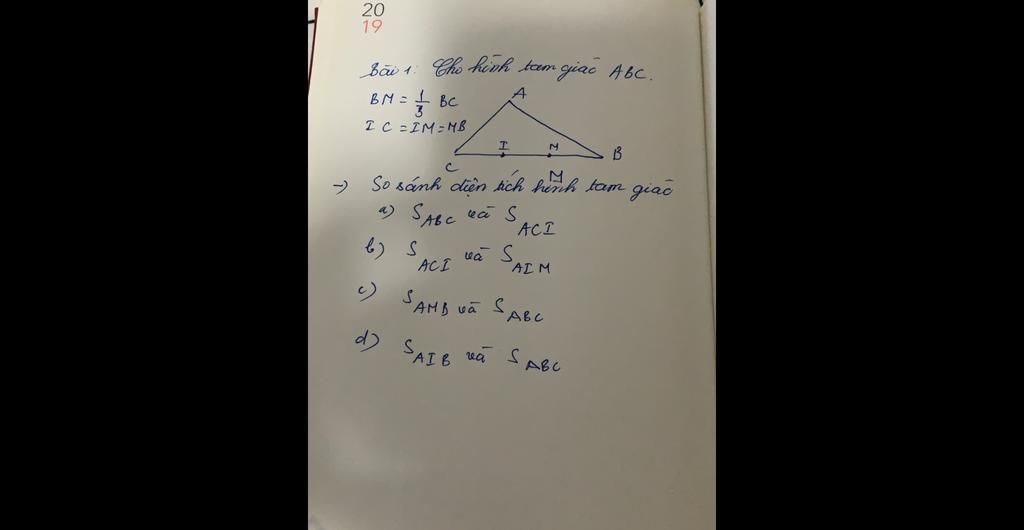 20
19
Bài 1: Cho hình tam giác ABC.
BM = 1/3 BC
IC = IM = MB
A
I
M
B
C
M
-> So sánh diện tích hình tam giác
a) S ABC và S ACI
b) S ACI và S AIM
c) S AMB và S ABC
d) S AIB và S ABC